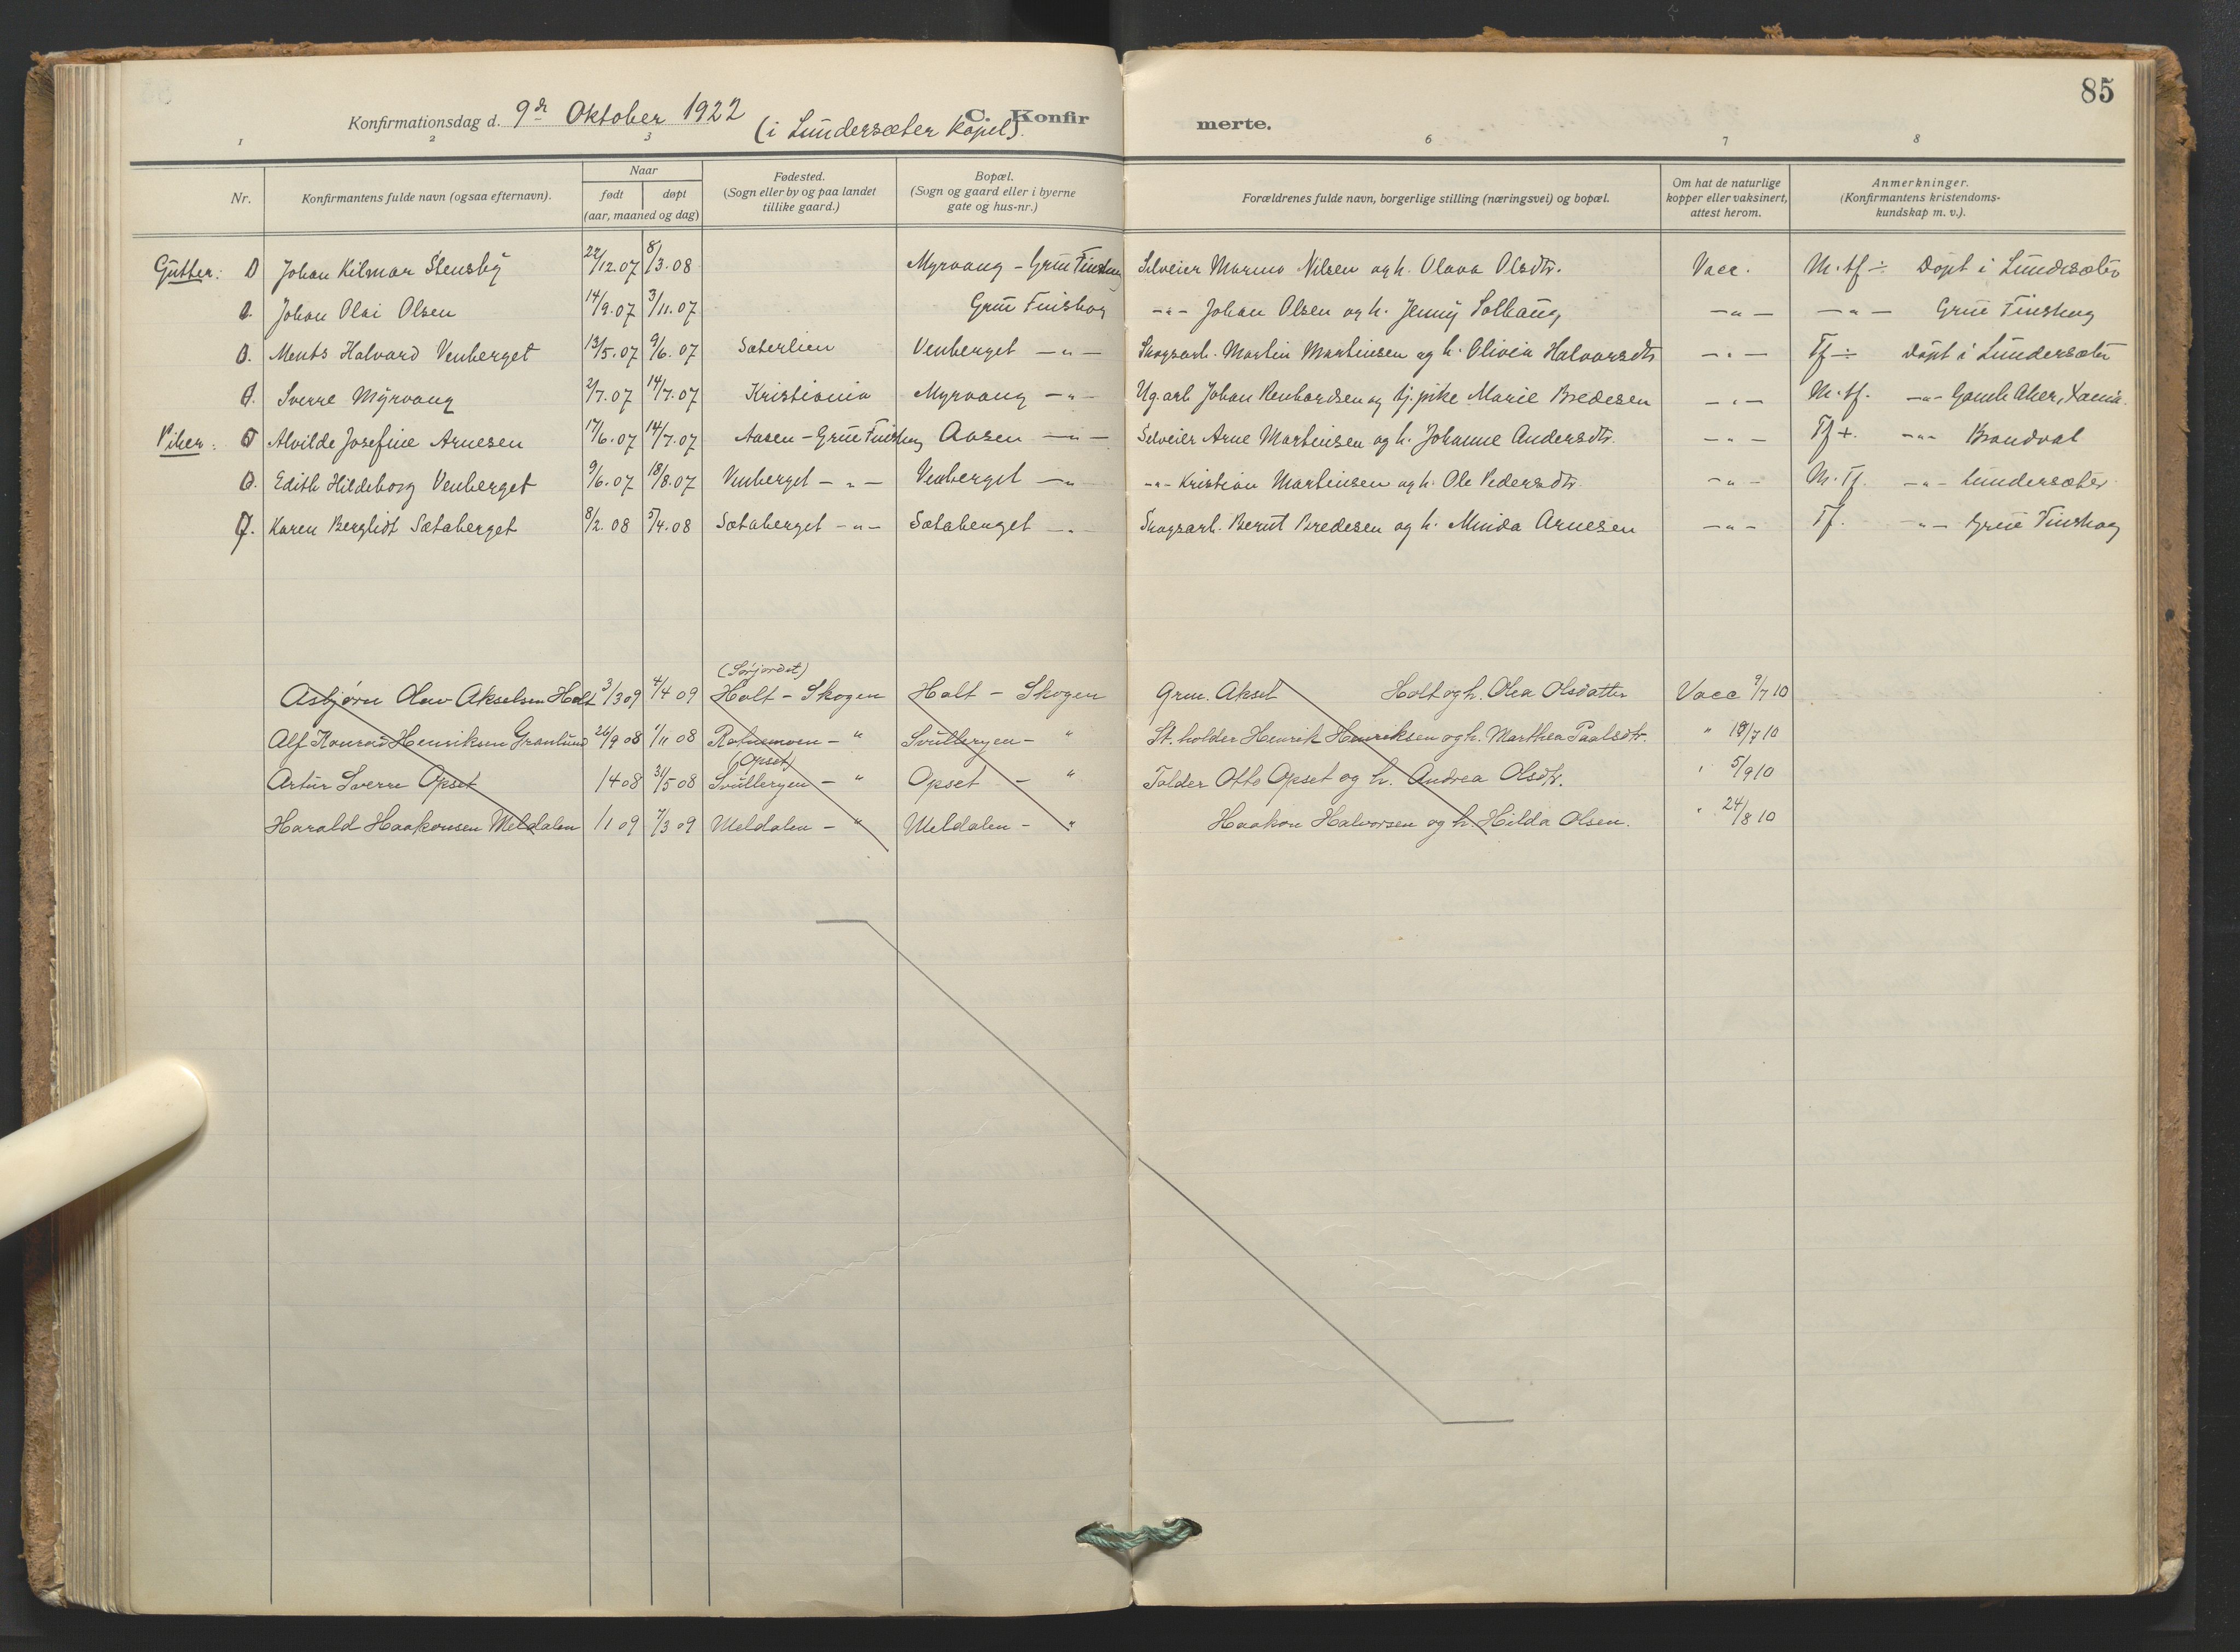 85
Konfirmationsdag d. 9de Oktober 1922 C. Konfir merte.
(i Lundersæter kapel).
1 2 3 6 7 8
Nr. Konfirmantens fulde navn (ogsaa efternavn). Naar født døpt (aar, maaned og dag) Fødested. (Sogn eller by og paa landet tillike gaard.) Bopæl. (Sogn og gaard eller i byerne gate og hus-nr.) Forældrenes fulde navn, borgerlige stilling (næringsvei) og bopæl. Om hat de naturlige kopper eller vaksinert, attest herom. Anmerkninger. (Konfirmantens kristendoms-kundskap m. v.).
Gutter: Johan Hilmar Stensby 22/12.07 8/3.08 Myrvang - Grue Finskog Selveier Marino Nilsen og h. Olava Olsdtr. Vacc. M. tf ÷ Døpt i Lundersæter
Johan Olai Olsen 14/9.07 3/11.07 Grue Finskog -"- Johan Olsen og h. Jenny Solbaug -"- -"- Grue Finskog
Ments Halvard Venberget 13/5.07 9/6.07 Sæterlien Venberget -"- Skogsarb. Martin Martinsen og h. Olivia Halvorsdtr -"- Tf ÷ døpt i Lundersæter
Sverre Myrvang 2/7.07 14/7.07 Kristiania Myrvang -"- Ug. arb Johan Renhardsen og tj. pike Marie Bredesen -"- M. tf. -"- Gamle Aker, Xania.
Piker: Alvilde Josefine Arnesen 17/6.07 14/7.07 Aasen - Grue Finskog Aasen -"- Selveier Arne Martinsen og h. Johanne Andersdtr. -"- Tf +. -"- Brandval
Edith Hildeborg Venberget 9/6.07 18/8.07 Venberget -"- Venberget -"- -"- Kristian Martinsen og h. Ole Pedersdtr. -"- M. Tf. -"- Lundersæter
Karen Bergliot Sætaberget 8/2.08 5/4.08 Sætaberget -"- Sætaberget -"- Skogsarb. Bernt Bredesen og h. Minda Arnesen -"- Tf. -"- Grue Finskog
(Sørjordet)
Asbjørn Olav Akselsen Holt 3/3 09 4/4 09 Holt - Skogen Holt - Skogen Grm. Aksel Holt og h. Olea Olsdatter Vacc 9/7 10
Alf Konrad Henriksen Granlund 26/9 08 1/11 08 Rotnemoen - " Svullergen - " St. holder Henrik Henriksen og h. Marthea Paalsdtr. " 18/7 10
(Opset)
Artur Sverre Opset 1/4 08 31/5 08 Svullergen - " Opset - " Tolder Otto Opset og h. Andrea Olsdtr. " 5/9 10
Harald Haakonsen Meldalen 1/1 09 7/3 09 Meldalen - " Meldalen - " Haakon Halvorsen og h. Hilda Olsen. " 24/8 10